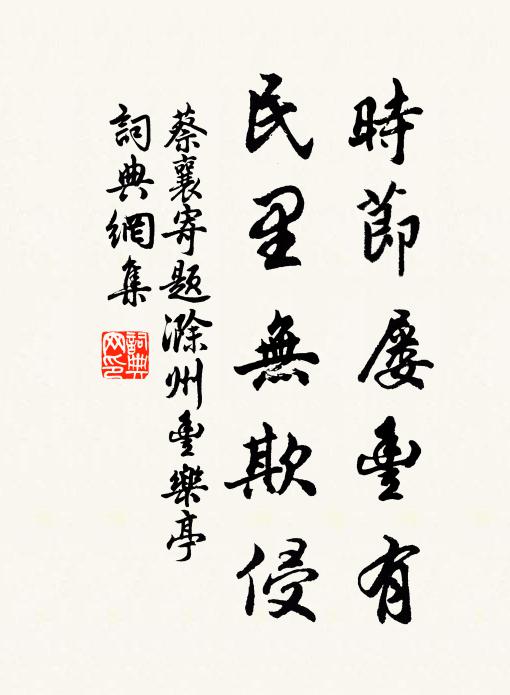 時節屡豊有
民里無欺侵
蔡襄寄題滁州豊樂亭
詞典網集
詞典網印